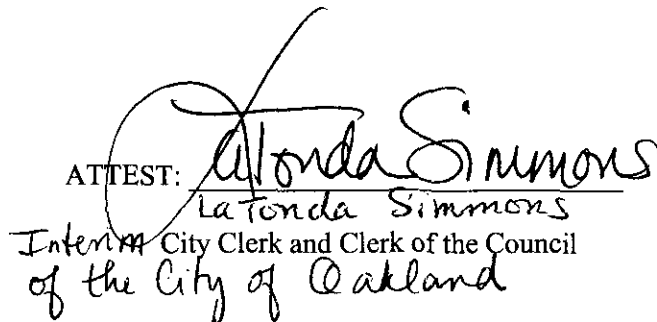 ATTEST: LaTonda Simmons
LaTonda Simmons
Interim City Clerk and Clerk of the Council
of the City of Oakland